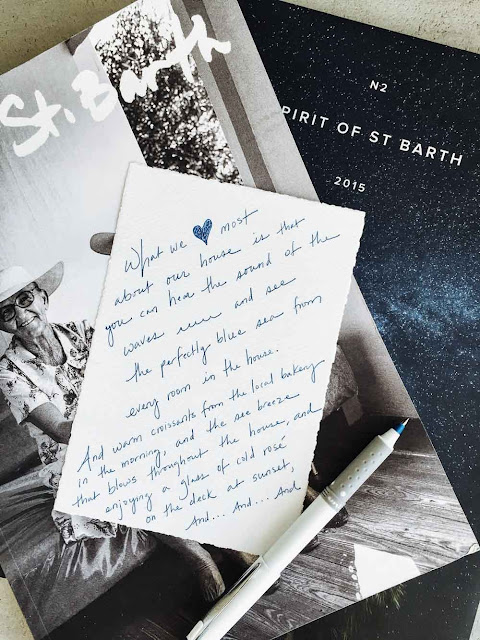 St. Barth
N2
PIRIT OF ST BARTH
2015
What we most
about our house is that
you can hear the sound of the
waves and see
the perfectly blue sea from
every room in the house.
And warm croissants from the local bakery
in the morning, and the sea breeze
that blows throughout the house, and
enjoying a glass of cold rosé
on the deck at sunset,
And... And... And